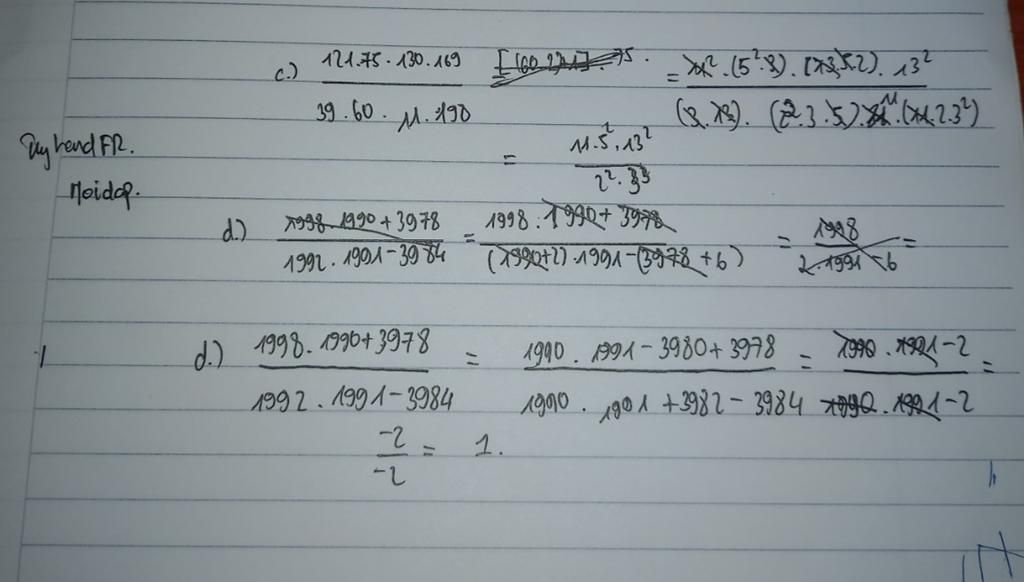 c.) 121.75.130.169 / 39.60.11.198 = (5².3).(13.5.2).13² / (3.13).(2².3.5).11.(11.2.3²)
= 11.5².13² / 2².3³
d.) 1998.1990+3978 / 1992.1991-3984 = 1998.1990+3978 / (1990+2).1991-(3978+6) = 1998 / 2.1991-6 =
d.) 1998.1990+3978 / 1992.1991-3984 = 1990.1991-3980+3978 / 1990.1991+3982-3984 = 1990.1991-2 / 1990.1991-2 =
-2 / -2 = 1.